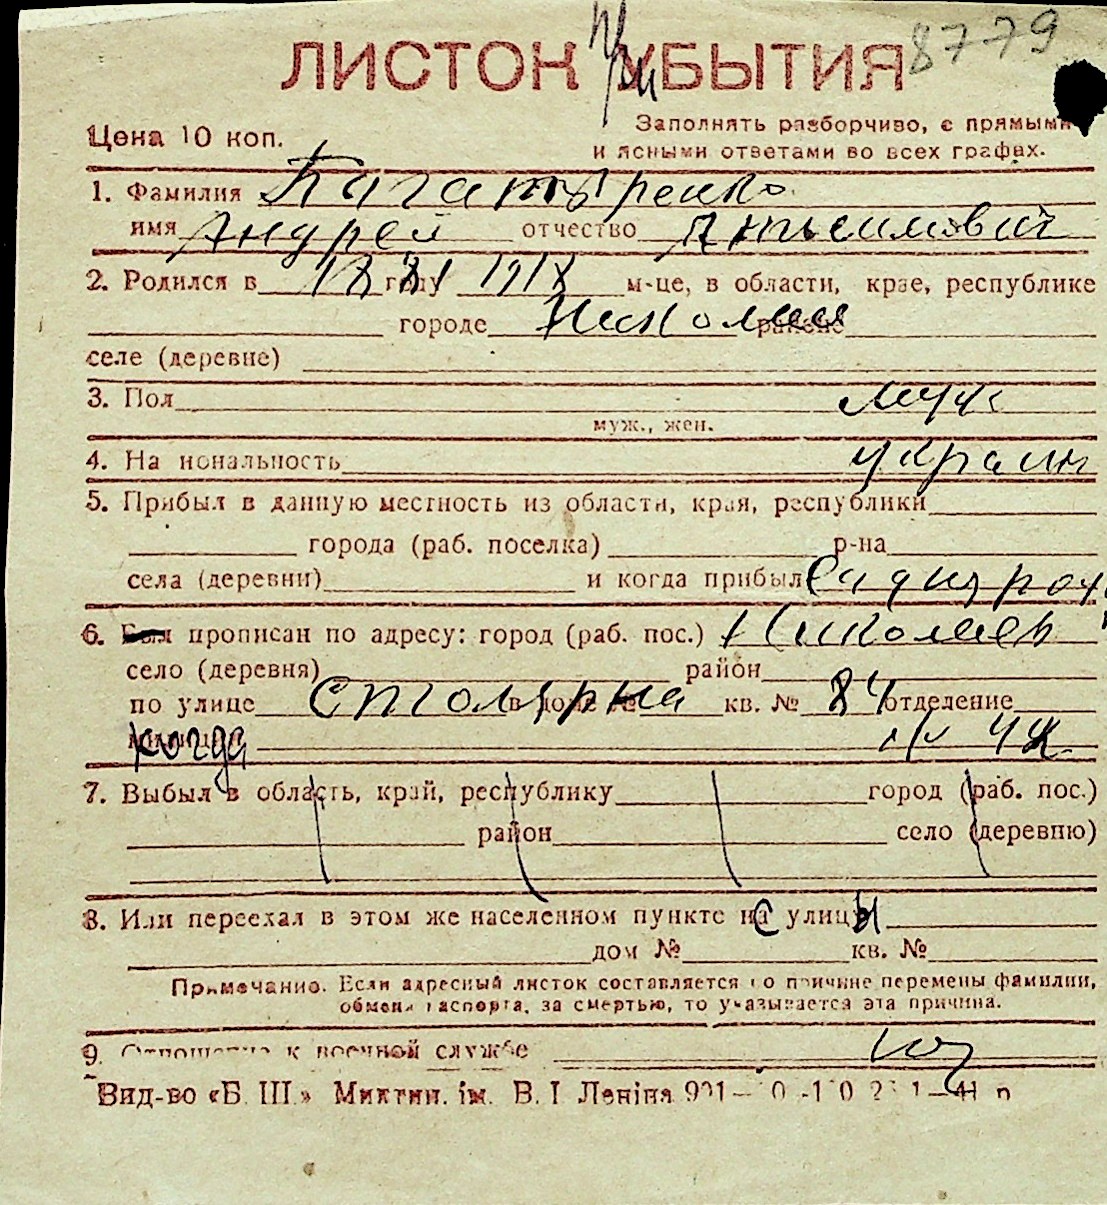 8779
ЛИСТОК УБЫТИЯ
Цена 10 коп.
Заполнять разборчиво, с прямыми
и ясными ответами во всех графах.
1. Фамилия Багатыренко
имя Андрей отчество Антысимович
2. Родился в 1881 году м-це, в области, крае, республике
городе Николаев районе
селе (деревне)
3. Пол муж
муж., жен.
4. Национальность украин
5. Прибыл в данную местность из области, края, республики
города (раб. поселка) р-на
села (деревни) и когда прибыл
6. Был прописан по адресу: город (раб. пос.) Николаев
село (деревня) район
по улице Столярна в доме № кв. № 84 отделение
когда
7. Выбыл в область, край, республику город (раб. пос.)
район село (деревню)
8. Или переехал в этом же населенном пункте с улицы
дом № кв. №
Примечание. Если адресный листок составляется по причине перемены фамилии,
обмена паспорта, за смертью, то указывается эта причина.
9. Отношение к военной службе
Вид-во «Б. Ш.» Миктип. ім. В. І Леніна